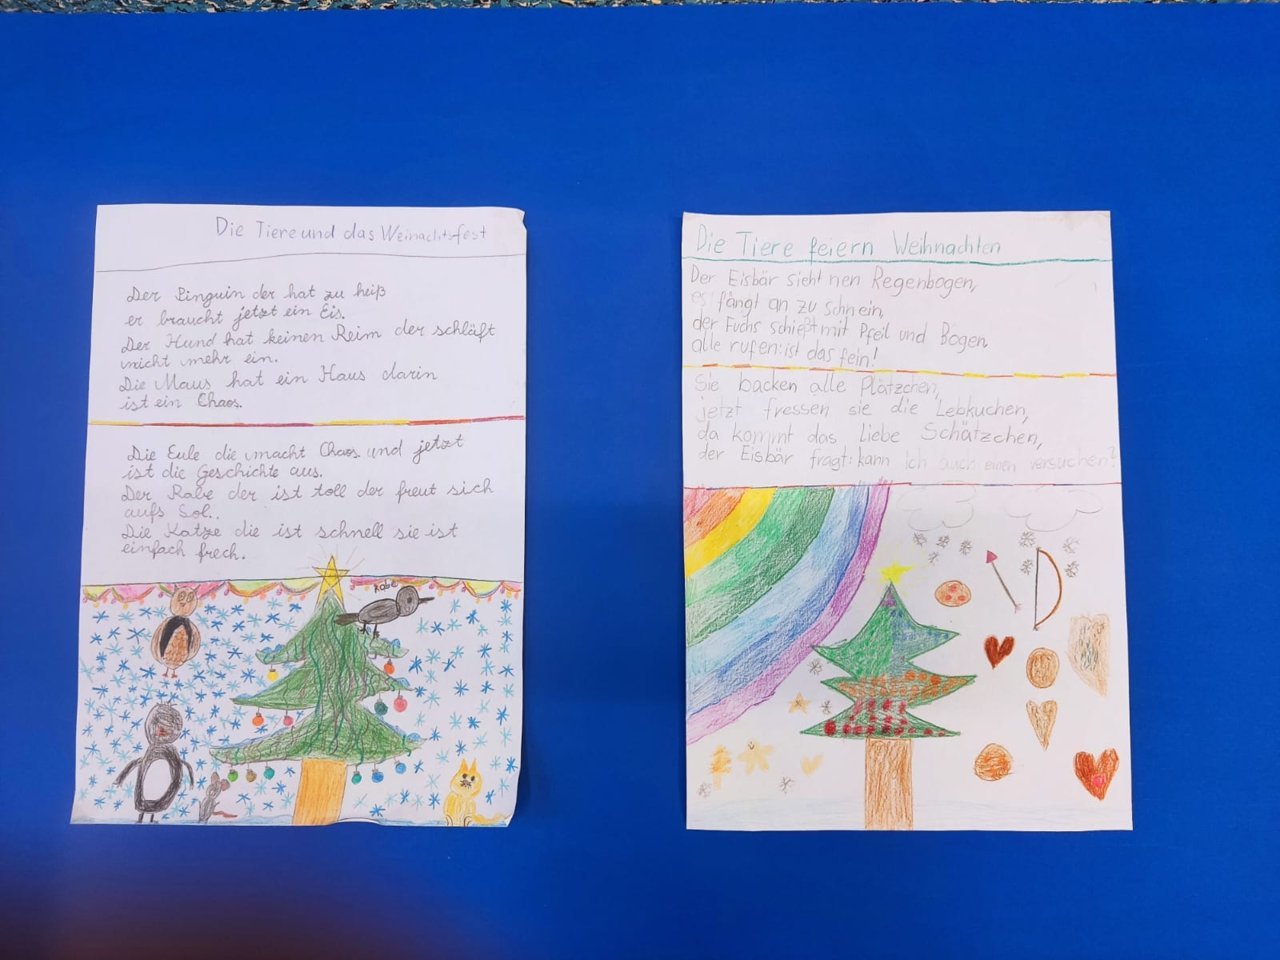 Die Tiere und das Weinachtsfest
Der Pinguin der hat zu heiß
er braucht jetzt ein Eis.
Der Hund hat keinen Reim der schläft
nicht mehr ein.
Die Maus hat ein Haus darin
ist ein Chaos.
Die Eule die macht Chaos und jetzt
ist die Geschichte aus.
Der Rabe der ist toll der freut sich
aufs Sol.
Die Katze die ist schnell sie ist
einfach frech.
Rabe
Die Tiere feiern Weihnachten
Der Eisbär sieht nen Regenbogen,
es fängt an zu schnein,
der Fuchs schießt mit Pfeil und Bogen
alle rufen: ist das fein!
Sie backen alle Plätzchen,
jetzt fressen sie die Lebkuchen,
da kommt das liebe Schätzchen,
der Eisbär fragt: kann ich auch einen versuchen?